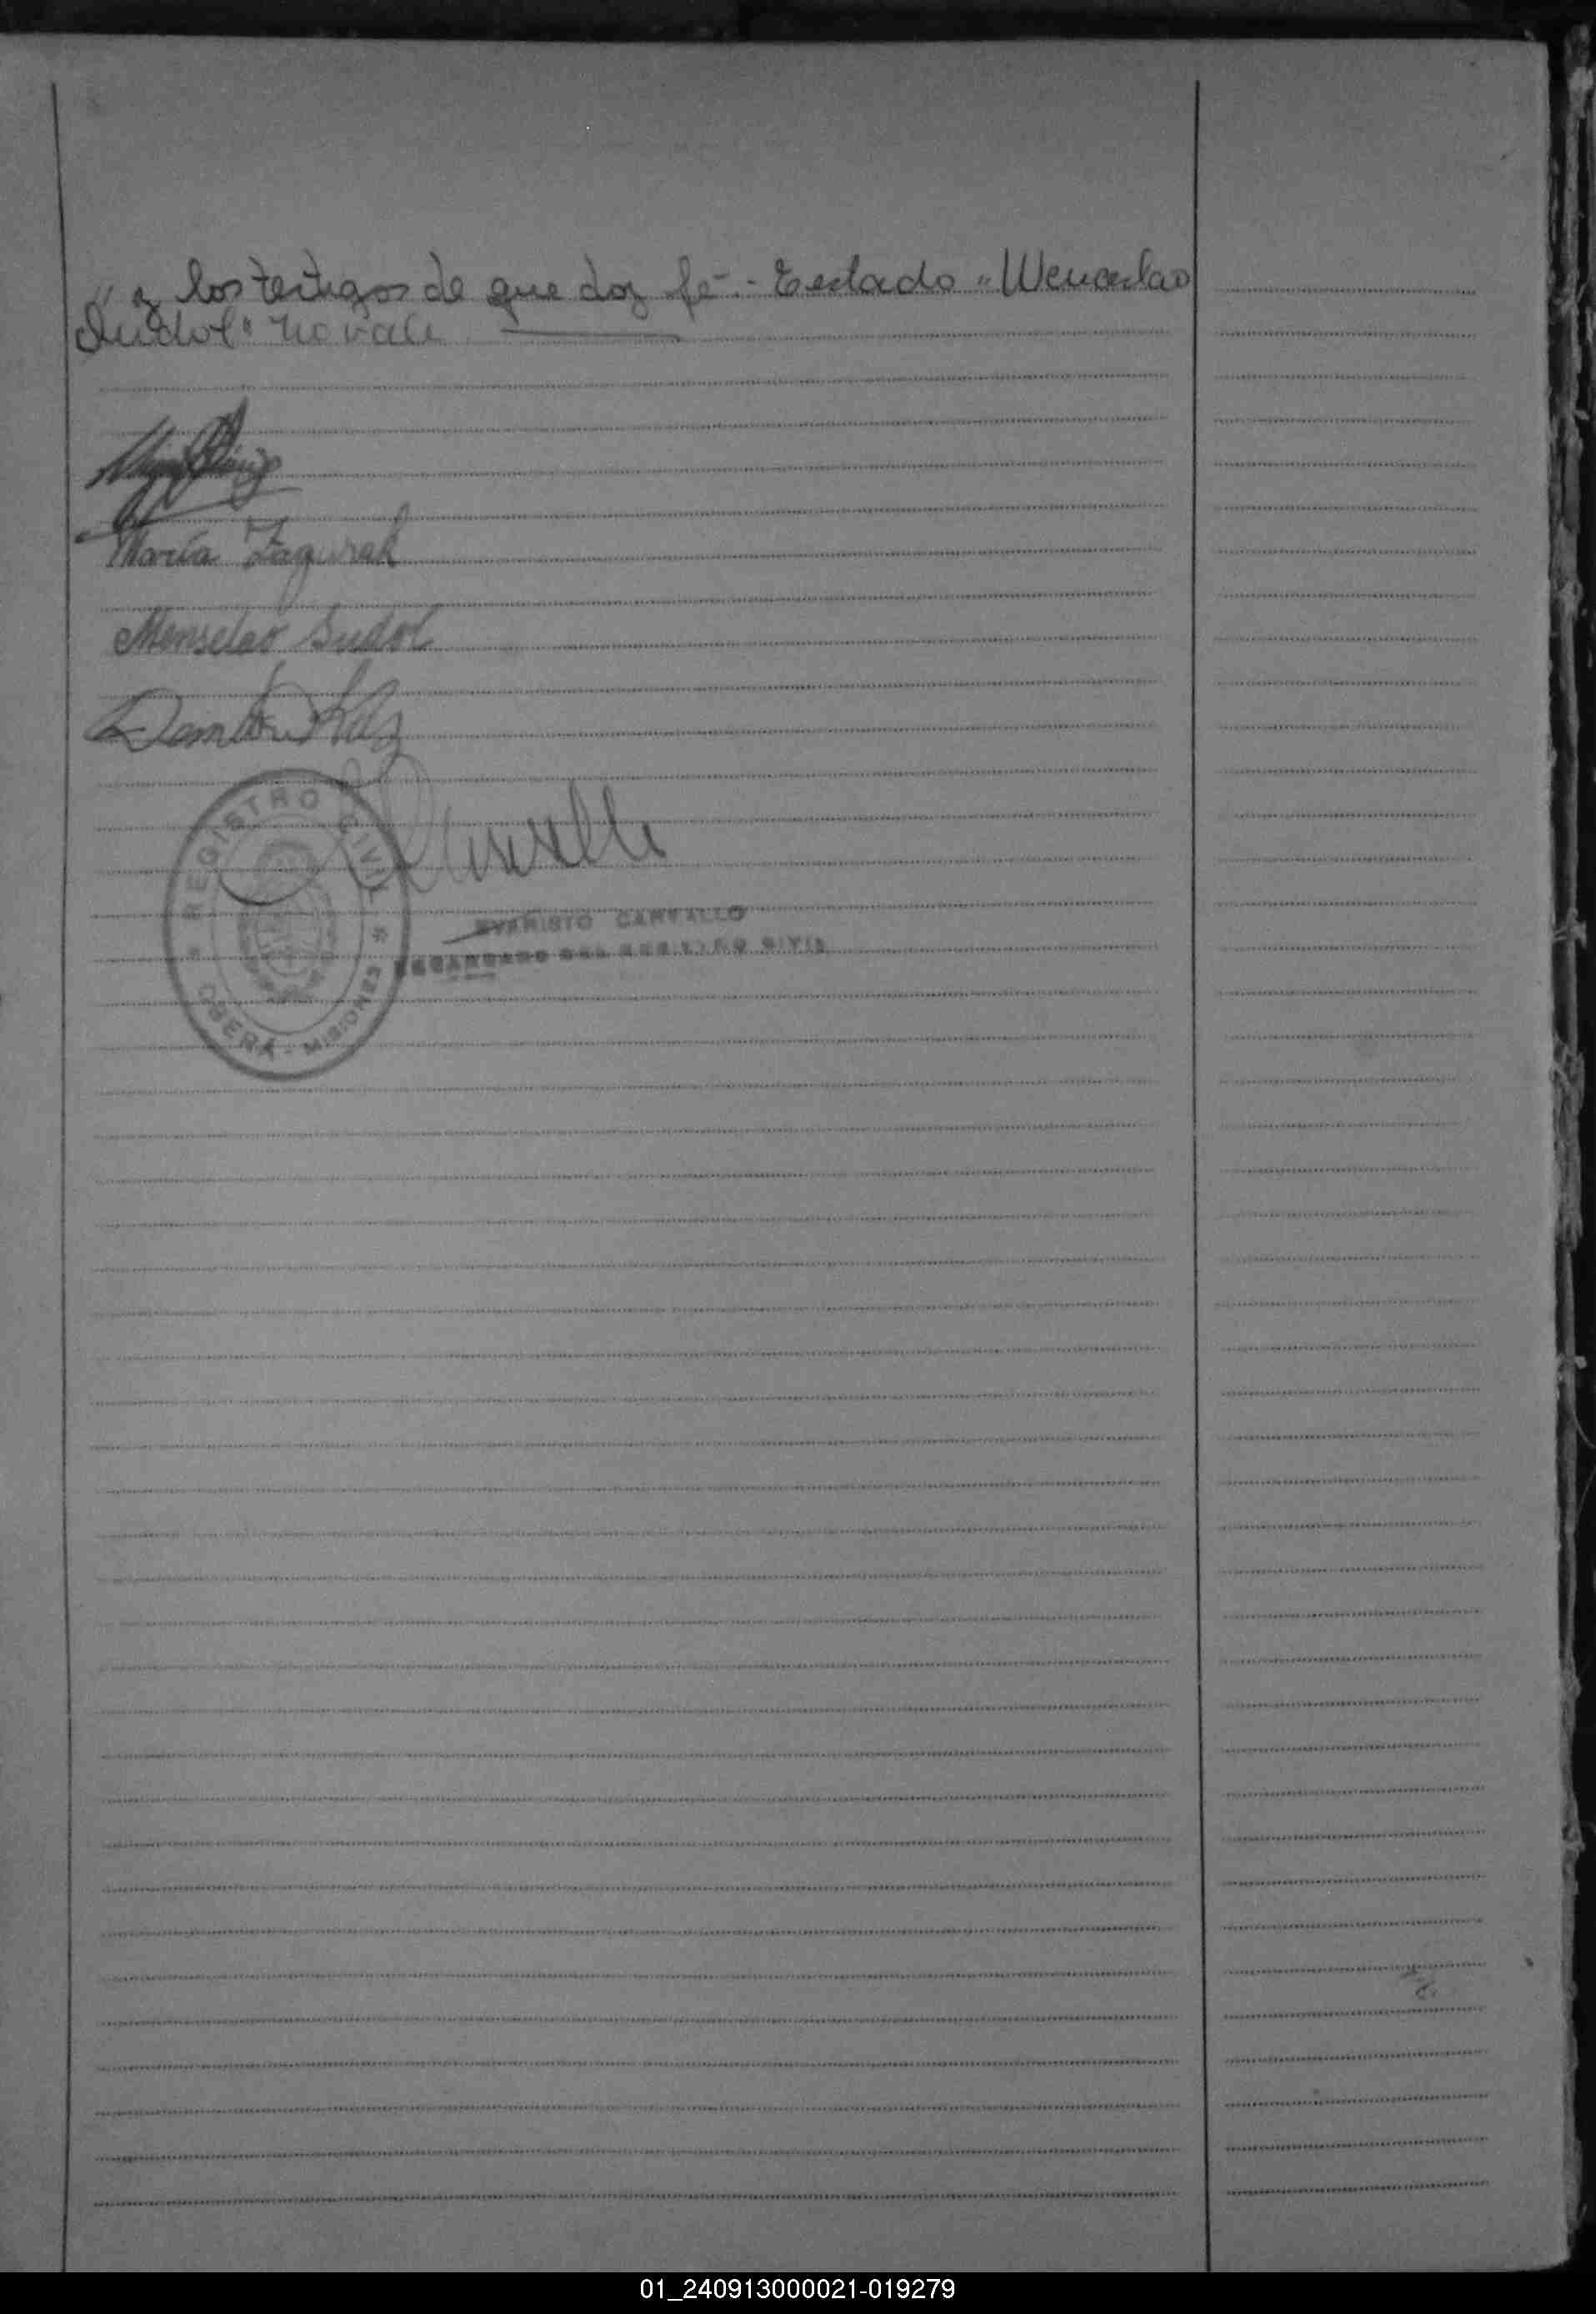 y los testigos de que doy fé.- Testado "Wenceslao
Sudol" no vale
María Zagurak
Wenselao Sudol
REGISTRO CIVIL
OBERÁ - MISIONES
EVARISTO CARVALLO
ENCARGADO DEL REGISTRO CIVIL
01_240913000021-019279